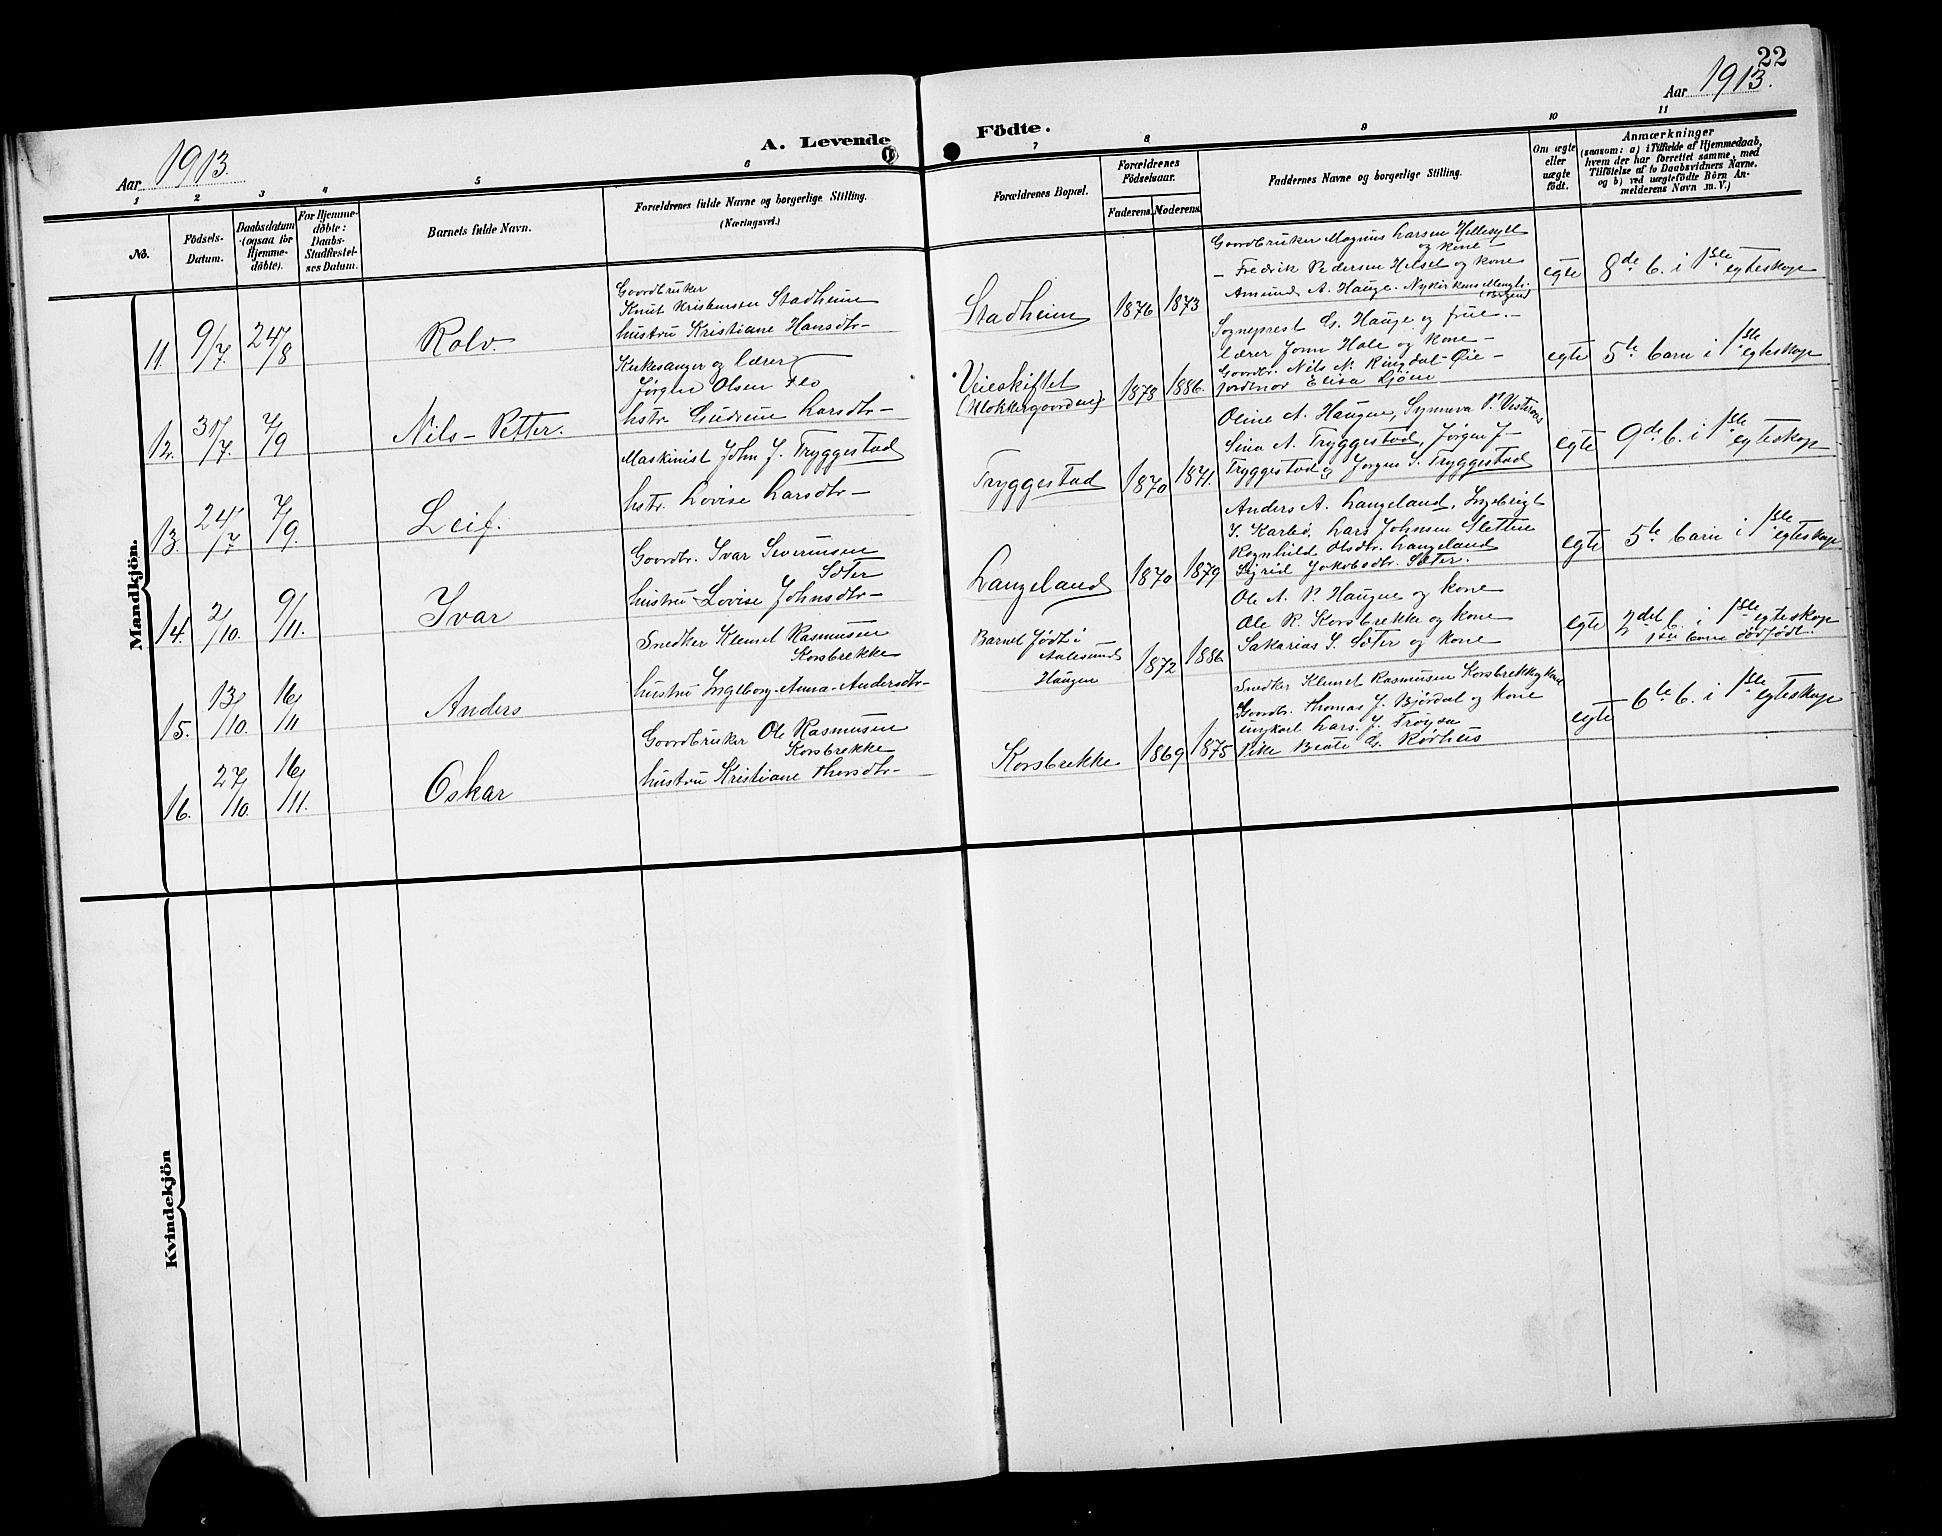 22
Aar 1913.
A. Levende
Födte.
Aar 1913.
1
2
3
4
5
6
7
8
9
10
11
No.
Födsels-
Datum.
Daabsdatum
(ogsaa for
Hjemme-
døbte).
For Hjemme-
døbte:
Daabs-
Stadfæstel-
ses Datum.
Barnets fulde Navn.
Forældrenes fulde Navne og borgerlige Stilling.
(Næringsvei.)
Forældrenes Bopæl.
Forældrenes
Fødselsaar.
Faderens.
Moderens.
Faddernes Navne og borgerlige Stilling.
Om ægte
eller
uægte
født.
Anmærkninger
(saasom: a) i Tilfælde af Hjemmedaab,
hvem der har forrettet samme, med
Tilføielse af to Daabsvidners Navne,
og b) ved uægtefødte Börn An-
melderens Navn m. V.)
Mandkjön.
11.
9/7.
24/8
Rolv.
Goordbruker
Knut Kristensen Stadheim
hustru Kristiane Hansdtr-
Stadheim
1876
1873
Goordbruker Magnus Larsen Hellesylt
og kone-
- Fredrik Pedersen Helset og kone
Amund A. Hauge. Nykirkens Mengh.
(Bergen)
egte
8de b. i 1ste
egteskap
12.
30/7.
7/9
Nils-Petter.
Kirkesanger og lærer
Jørgen Olsen Flo
hstr. Gudrun Larsdtr-
Veieskiftet
(Klokkergoorden)
1878
1886.
Sogneprest G. Hauge og frue.-
Lærer Jonn Hole og kone-
Goordbr. Nils N. Ringdal-Øie-
jordmor Elisa Ljøen
egte
5te barn i 1ste
egteskap
13.
24/7
7/9.
Leif.
Maskinist John J. Tryggestad
hstr. Lovise Larsdtr-
Tryggestad
1870
1871.
Oline A. Haugen, Synneva P. Vesteraas
Sina A. Tryggestad, Jørgen J-
Tryggestad og Jørgen S. Tryggestad
egte
9de b. i 1ste
egteskap
14.
2/10.
9/11.
Ivar
Goordbr. Ivar Severinsen
Sæter
hustru Lovise Johnsdtr-
Langeland
1870
1879
Anders A. Langeland, Ingebrigt
I. Karlbø, Lars Johnsen Sletten
Ragnhild Olsdtr. Langeland
Sigrid Jakobsdtr. Sæter.
egte
5te barn i 1ste
egteskap
15.
13/10.
16/11
Anders
Snedker Klemet Rasmusen
Korsbrekke
hustru Ingeborg-Anna-Andersdtr-
Barnet født i
Aalesund
Haugen
1872
1886
Ole A. P. Haugen og kone
Ole R. Korsbrekke og kone
Sakarias S. Sæter og kone
egte
2det b. i 1ste
egteskap
1ste barn dødfødt.
16.
27/10.
16/11.
Oskar
Goordbruker Ole Rasmusen
Korsbrekke
hustru Kristiane Thorsdtr-
Korsbrekke
1869
1875
Snedker Klemet Rasmusen Korsbrekke og kone
Goordbr. Thomas J. Bjørdal og kone
ungkarl Lars J. Frøysa
Pike Beate G. Rørhus
egte
6te b. i 1ste
egteskap
Kvindekjön